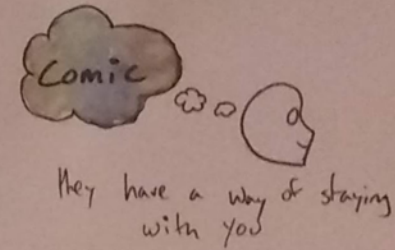 Comic
they have a way of staying
with you